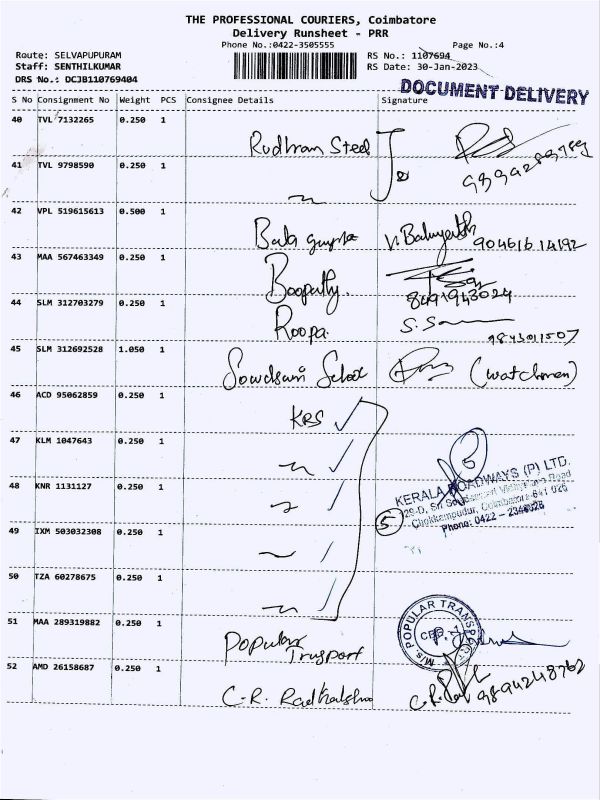 THE PROFESSIONAL COURIERS, Coimbatore
Delivery Runsheet - PRR
Phone No.:0422-3505555 Page No.:4
Route: SELVAPUPURAM RS No.: 1107694
Staff: SENTHILKUMAR RS Date: 30-Jan-2023
DRS No.: DCJB110769404
DOCUMENT DELIVERY
S No Consignment No Weight PCS Consignee Details Signature
40 TVL 7132265 0.250 1
Rudhram Steel
41 TVL 9798590 0.250 1
42 VPL 519615613 0.500 1
Bala gupta 9046161 4192
43 MAA 567463349 0.250 1
Boopathy. 8491943024
44 SLM 312703279 0.250 1
Roopa.
45 SLM 312692528 1.050 1
(watchman)
46 ACD 95062859 0.250 1
KRS
47 KLM 1047643 0.250 1
48 KNR 1131127 0.250 1
KERALA ROADWAYS (P) LTD.
Chokkampudur, Coimbatore-641 026
5
49 IXM 503032308 0.250 1
50 TZA 60278675 0.250 1
51 MAA 289319882 0.250 1
M/s. POPULAR TRANSPORT
CBE - 1
Popular
Trnsport
52 AMD 26158687 0.250 1
C.R. 9894248762